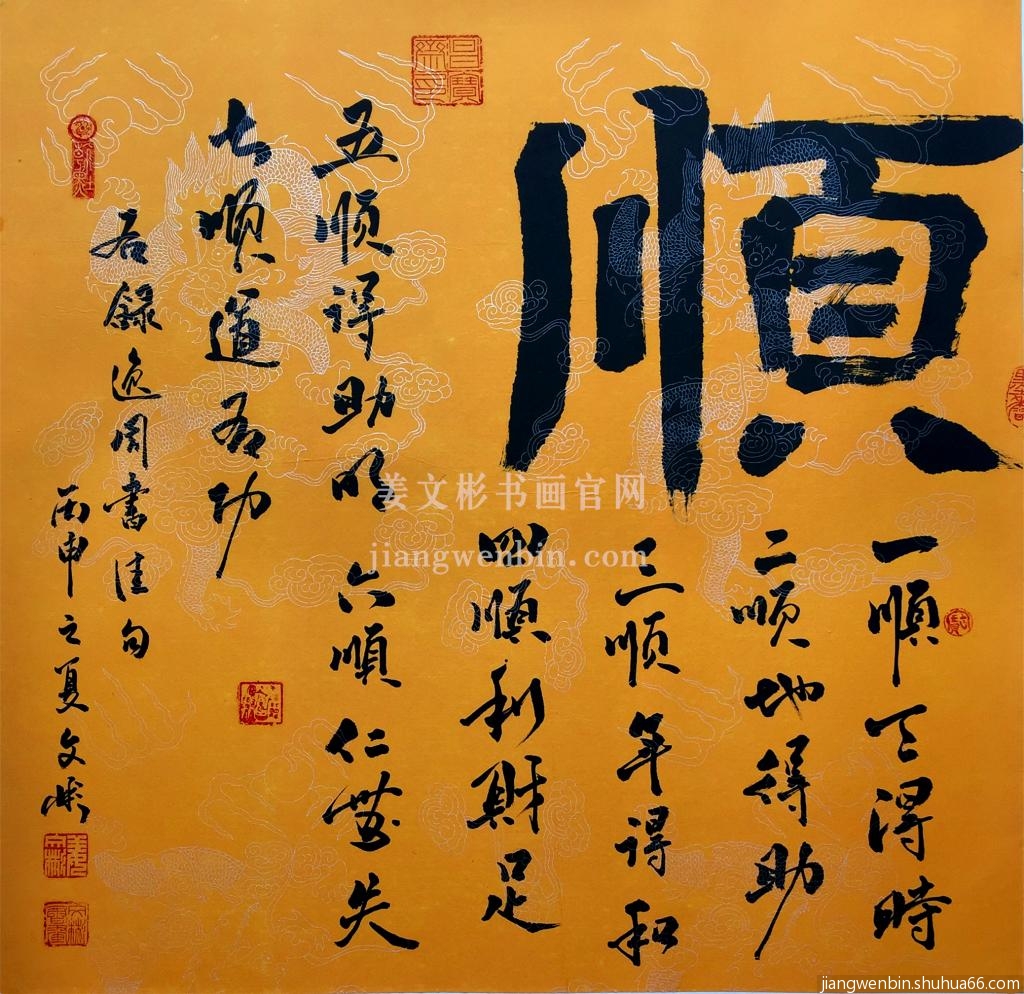 順
一順天得時
二顺地得助
三顺年得和
四順利財足
五顺得助明
六順仁無失
七顺道有功
右録逸周書佳句
丙申之夏文彬
姜文彬书画官网
jiangwenbin.com
jiangwenbin.shuhua66.com